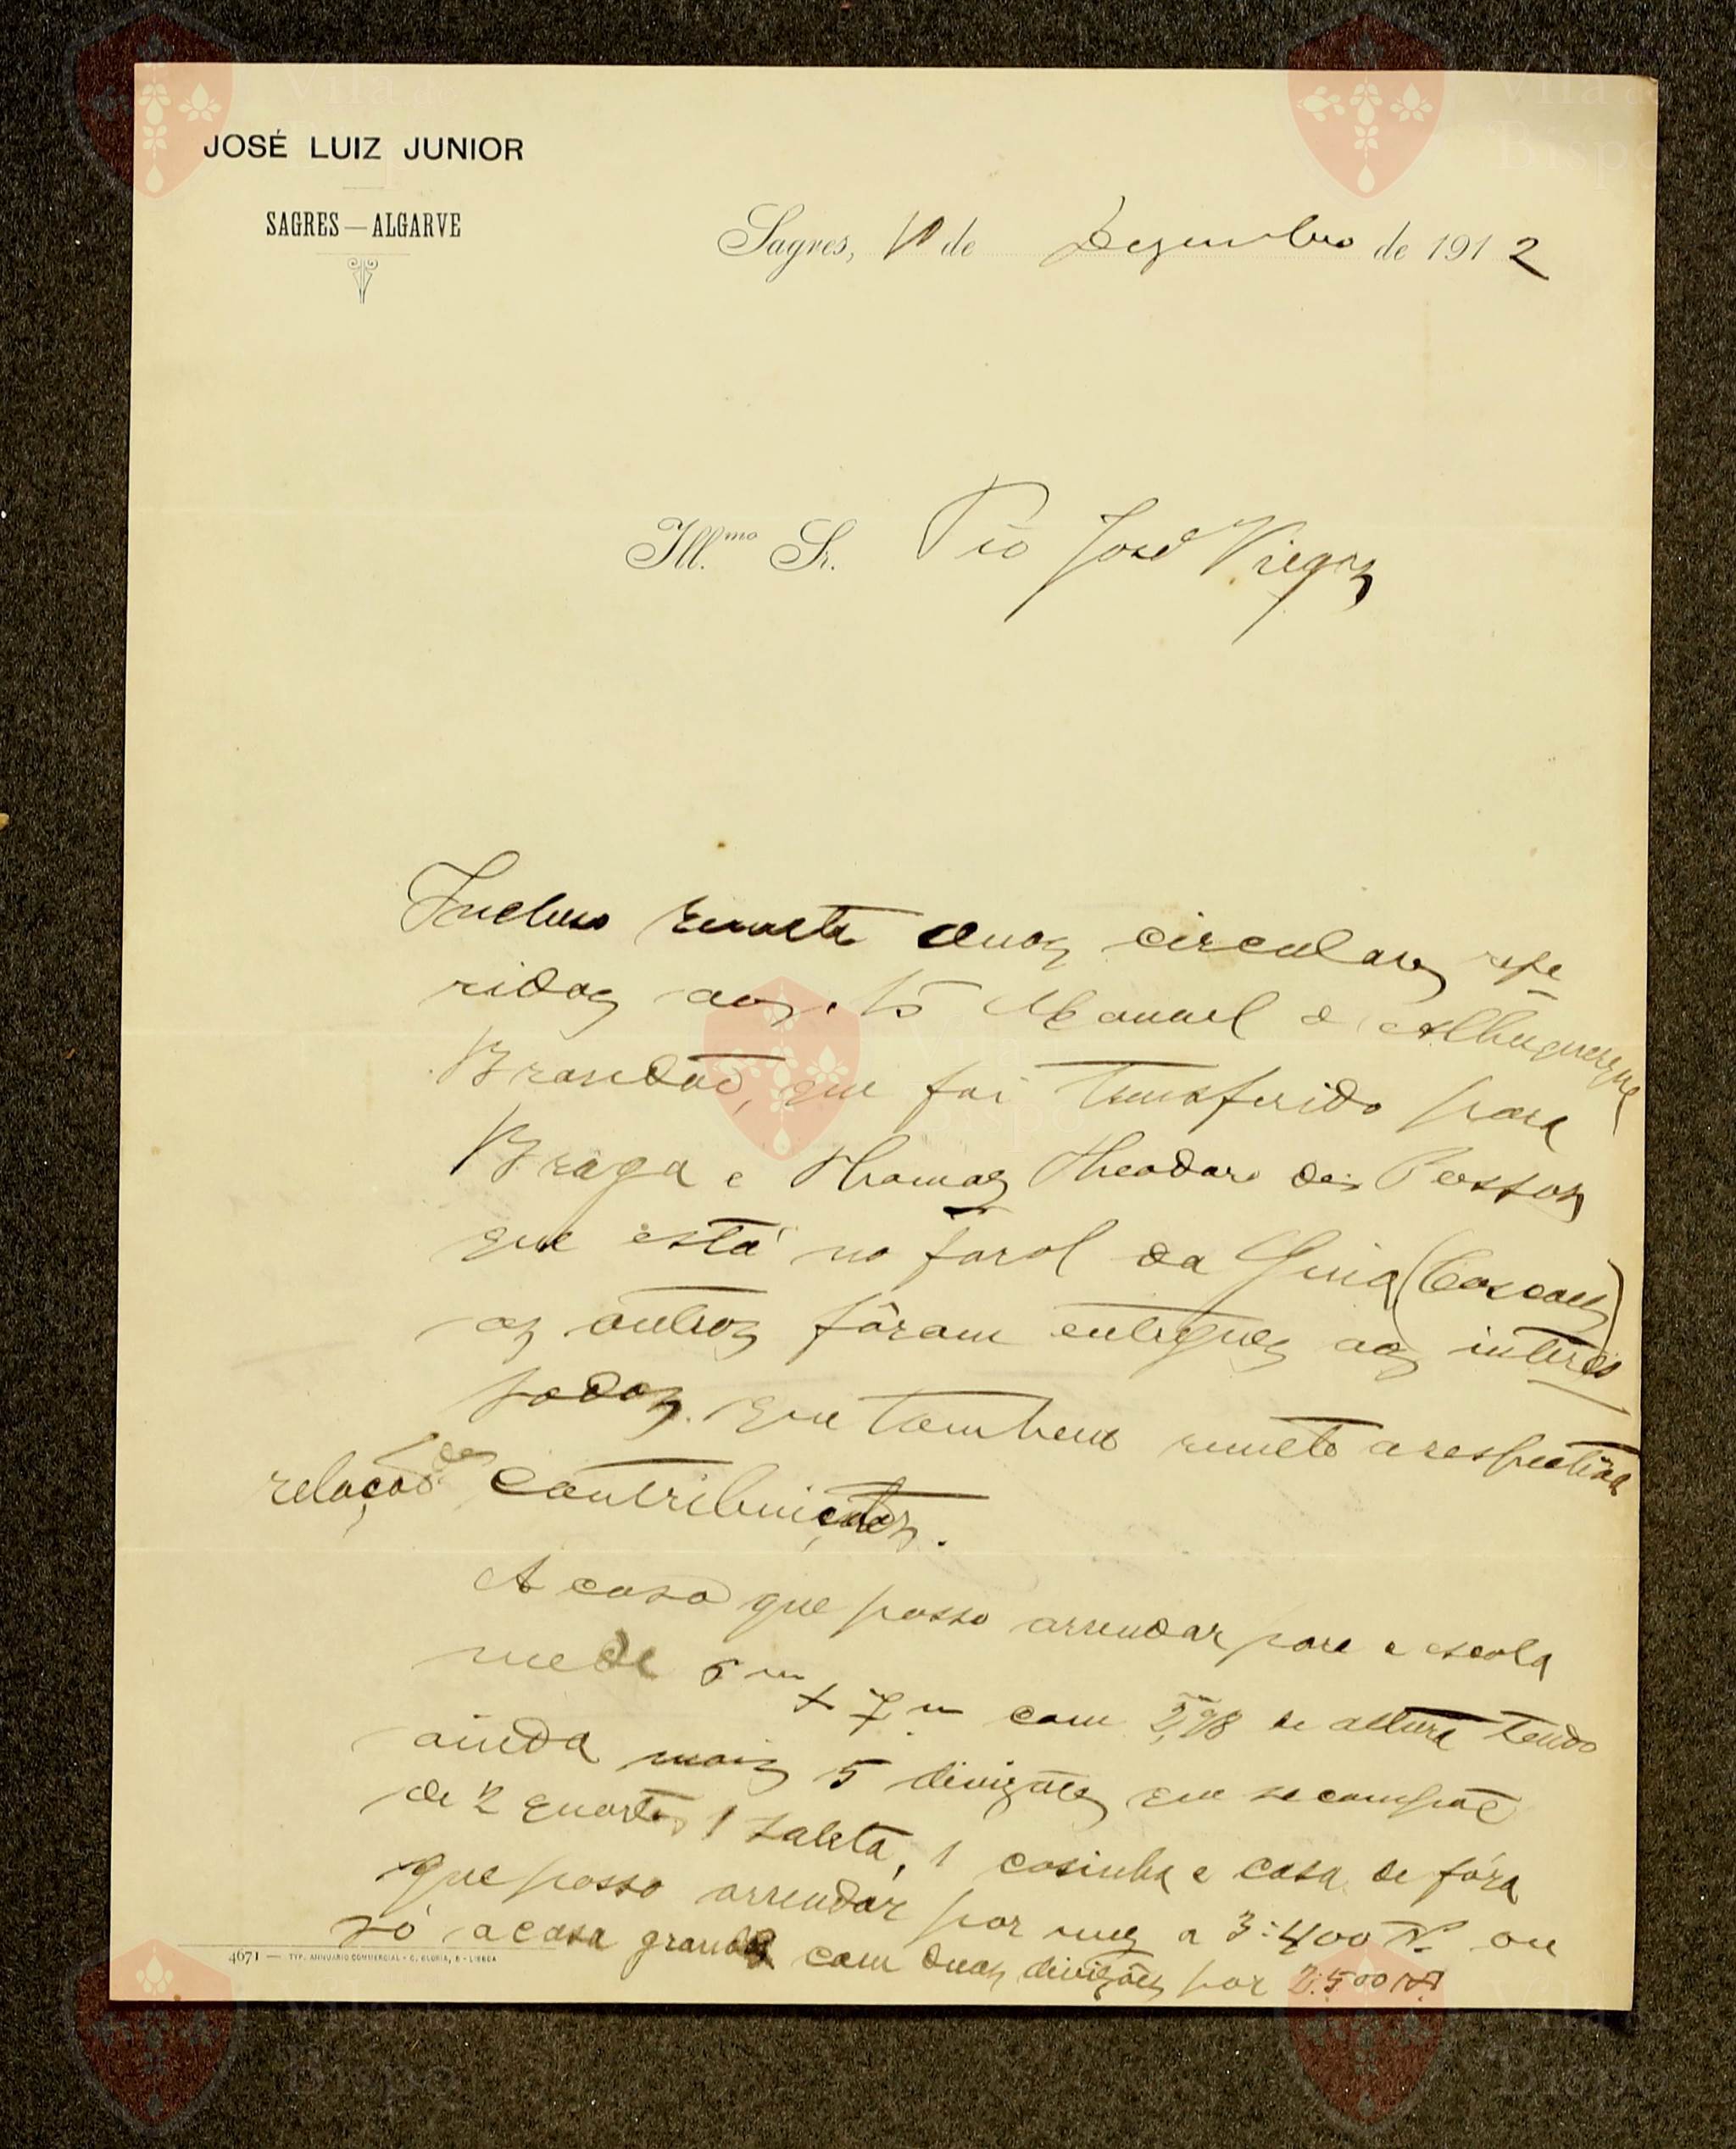 JOSÉ LUIZ JUNIOR
SAGRES—ALGARVE
Sagres, de Dezembro de 1912
Ill.mo Sr. Pio José Viegas
Incluso remeto duas circulares refe
ridas aos Manuel d'Albuquerque
Brandão, que foi transferido para
Braga e Thomaz Theodoro dos Passos
que está no farol da Guia (Cascaes)
as outras fôram entregues aos interes
sados. que tambem remeto a respectiva
relação de contribuições.
A casa que posso arrendar para a escola
mede 6m x 7m com 2,m98 de altura tendo
ainda mais 5 divizões que se compõe
de 2 quartos 1 saleta, 1 cosinha e casa de fóra
que posso arrendar por mez a 3:400 ou
só a casa grande com duas divizões por 2:500
4671 — TYP. ANNUARIO COMMERCIAL - C. GLORIA, 5 - LISBOA
Vila do
Bispo